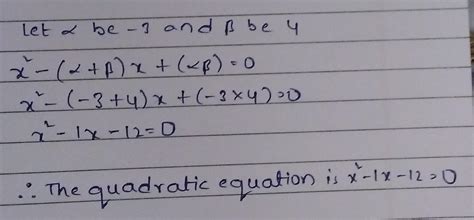 Let α be -3 and β be 4
x² - (α + β) x + (αβ) = 0
x² - (-3+4) x + (-3×4) = 0
x² - 1x - 12 = 0
∴ The quadratic equation is x² - 1x - 12 = 0